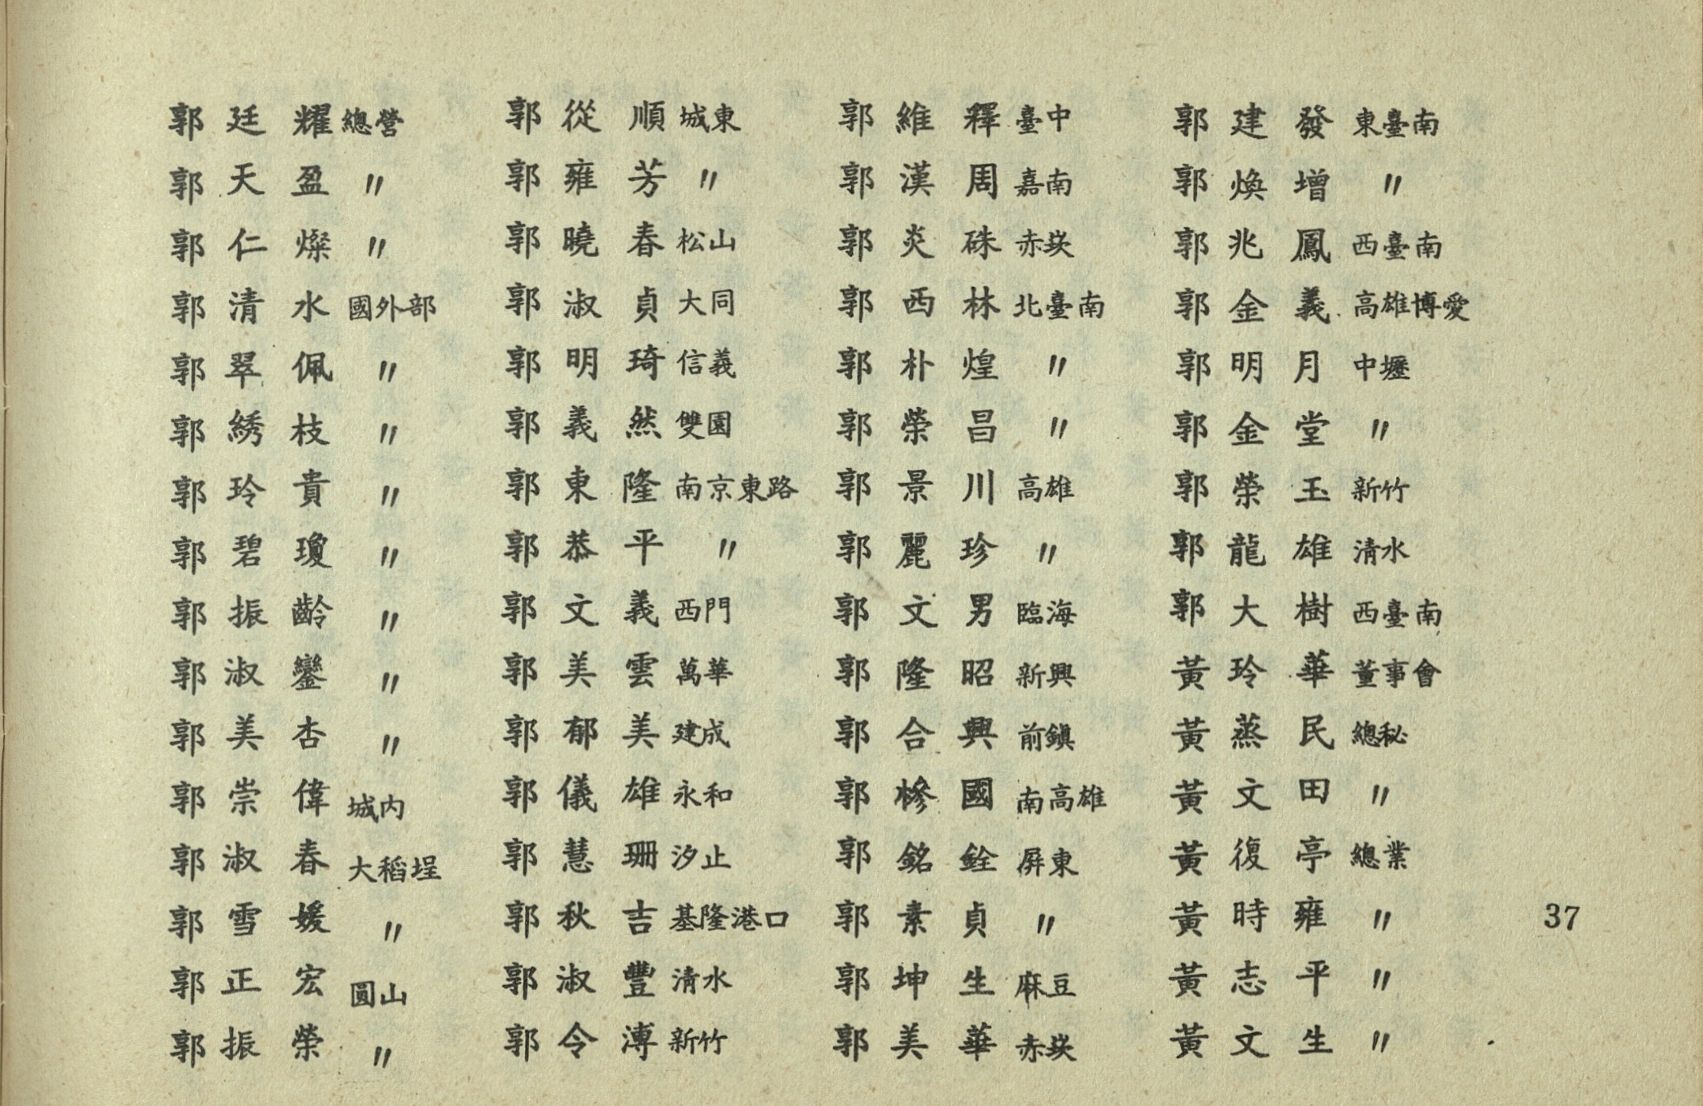 郭廷耀 總營
郭天盈 〃
郭仁燦 〃
郭清水 國外部
郭翠佩 〃
郭綉枝 〃
郭玲貴 〃
郭碧瓊 〃
郭振齡 〃
郭淑鑾 〃
郭美杏 〃
郭崇偉 城內
郭淑春 大稻埕
郭雪媛 〃
郭正宏 圓山
郭振榮 〃
郭從順 城東
郭雍芳 〃
郭曉春 松山
郭淑貞 大同
郭明琦 信義
郭義然 雙園
郭東隆 南京東路
郭恭平 〃
郭文義 西門
郭美雲 萬華
郭郁美 建成
郭儀雄 永和
郭慧珊 汐止
郭秋吉 基隆港口
郭淑豐 清水
郭令溥 新竹
郭維釋 臺中
郭漢周 嘉南
郭炎硃 赤崁
郭西林 北臺南
郭朴煌 〃
郭榮昌 〃
郭景川 高雄
郭麗珍 〃
郭文男 臨海
郭隆昭 新興
郭合興 前鎮
郭槮國 南高雄
郭銘銓 屏東
郭素貞 〃
郭坤生 麻豆
郭美華 赤崁
郭建發 東臺南
郭煥增 〃
郭兆鳳 西臺南
郭金義 高雄博愛
郭明月 中壢
郭金堂 〃
郭榮玉 新竹
郭龍雄 清水
郭大樹 西臺南
黃玲華 董事會
黃蒸民 總秘
黃文田 〃
黃復亭 總業
黃時雍 〃
黃志平 〃
黃文生 〃
37